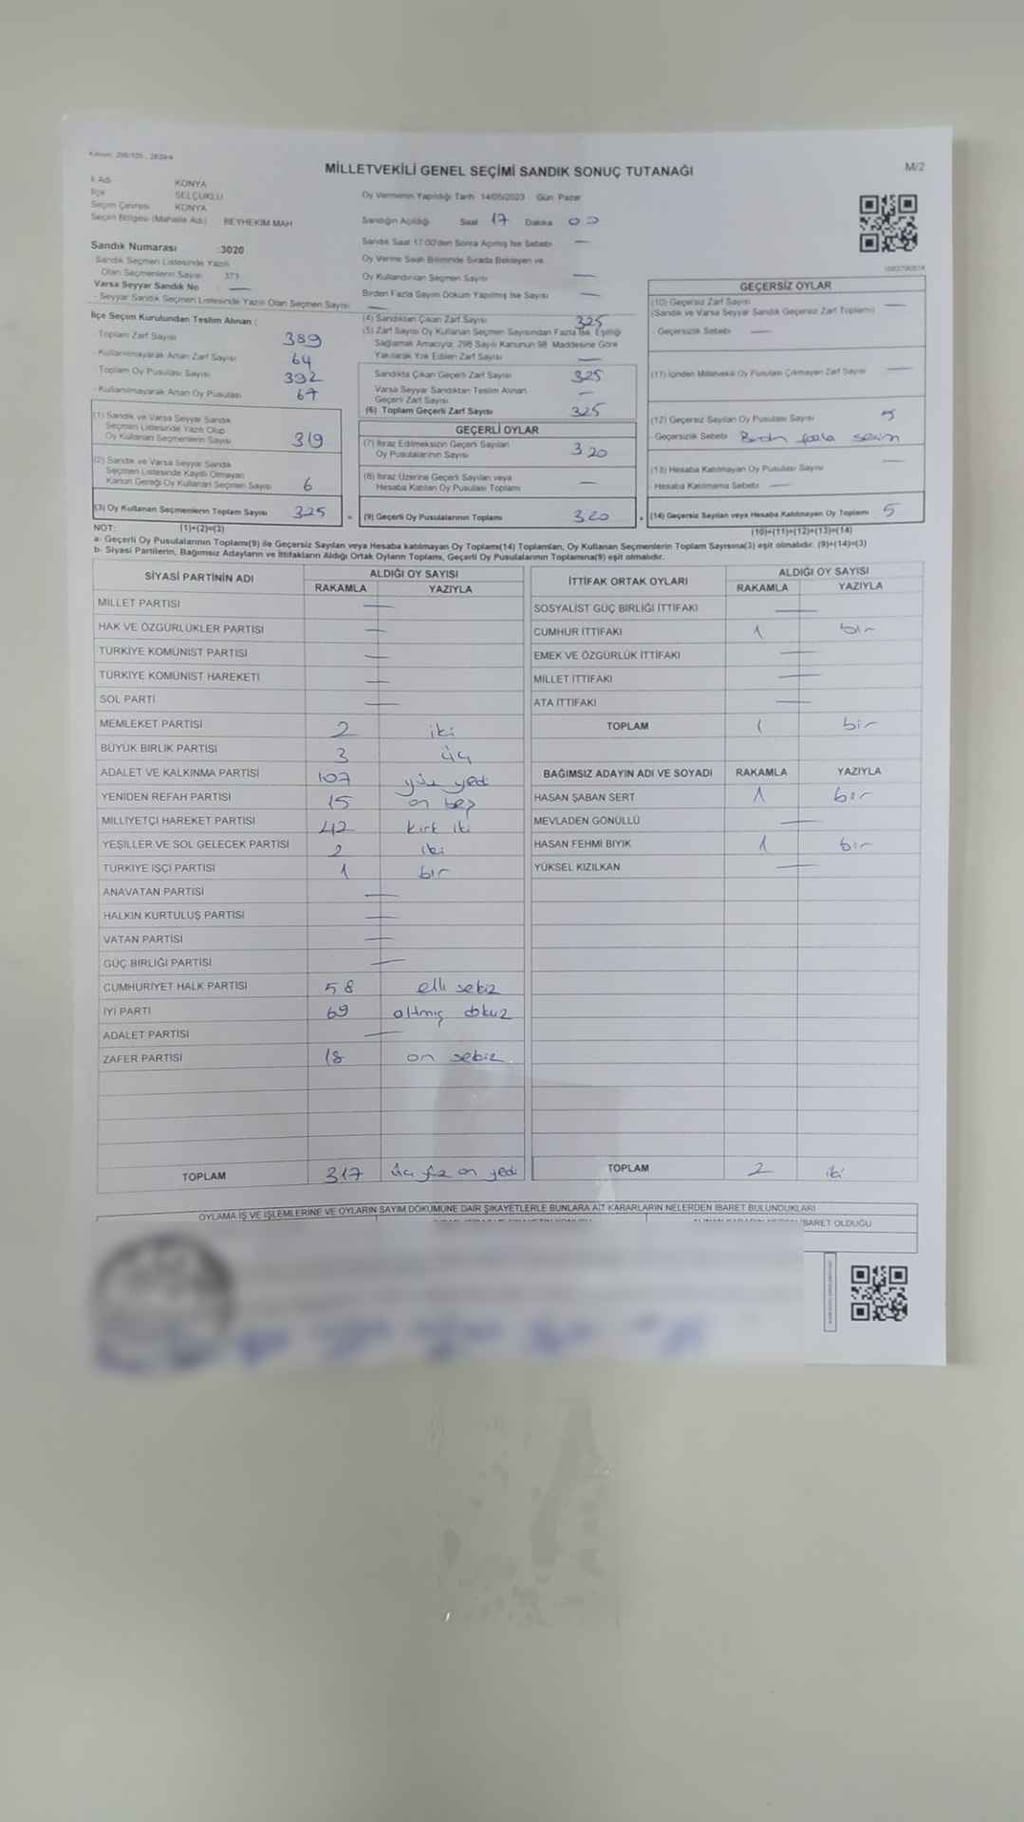 MİLLETVEKİLİ GENEL SEÇİMİ SANDIK SONUÇ TUTANAĞI
M/2
İl Adı KONYA
İlçe SELÇUKLU
Seçim Çevresi KONYA
Seçim Bölgesi (Mahalle Adı) BEYHEKİM MAH
Sandık Numarası :3020
Sandık Seçmen Listesinde Yazılı
Olan Seçmenlerin Sayısı 373
Varsa Seyyar Sandık No —
- Seyyar Sandık Seçmen Listesinde Yazılı Olan Seçmen Sayısı
İlçe Seçim Kurulundan Teslim Alınan :
Toplam Zarf Sayısı 389
- Kullanılmayarak Artan Zarf Sayısı 64
Toplam Oy Pusulası Sayısı 392
- Kullanılmayarak Artan Oy Pusulası 67
(1) Sandık ve Varsa Seyyar Sandık
Seçmen Listesinde Yazılı Olup
Oy Kullanan Seçmenlerin Sayısı 319
(2) Sandık ve Varsa Seyyar Sandık
Seçmen Listesinde Kayıtlı Olmayan
Kanun Gereği Oy Kullanan Seçmen Sayısı 6
(3) Oy Kullanan Seçmenlerin Toplam Sayısı 325
Oy Vermenin Yapıldığı Tarih 14/05/2023 Gün Pazar
Sandığın Açıldığı Saat 17 Dakika 00
Sandık Saat 17.00'den Sonra Açılmış İse Sebebi —
Oy Verme Saati Bitiminde Sırada Bekleyen ve
Oy Kullandırılan Seçmen Sayısı —
Birden Fazla Sayım Döküm Yapılmış İse Sayısı —
(4) Sandıktan Çıkan Zarf Sayısı 325
(5) Zarf Sayısı Oy Kullanan Seçmen Sayısından Fazla İse, Eşitliği
Sağlamak Amacıyla, 298 Sayılı Kanunun 98. Maddesine Göre
Yakılarak Yok Edilen Zarf Sayısı —
Sandıkta Çıkan Geçerli Zarf Sayısı 325
Varsa Seyyar Sandıktan Teslim Alınan
Geçerli Zarf Sayısı —
(6) Toplam Geçerli Zarf Sayısı 325
GEÇERLİ OYLAR
(7) İtiraz Edilmeksizin Geçerli Sayılan
Oy Pusulalarının Sayısı 320
(8) İtiraz Üzerine Geçerli Sayılan veya
Hesaba Katılan Oy Pusulası Toplamı —
(9) Geçerli Oy Pusulalarının Toplamı 320
GEÇERSİZ OYLAR
(10) Geçersiz Zarf Sayısı —
(Sandık ve Varsa Seyyar Sandık Geçersiz Zarf Toplamı)
- Geçersizlik Sebebi —
(11) İçinden Milletvekili Oy Pusulası Çıkmayan Zarf Sayısı —
(12) Geçersiz Sayılan Oy Pusulası Sayısı 5
- Geçersizlik Sebebi Birden fazla seçim
(13) Hesaba Katılmayan Oy Pusulası Sayısı —
Hesaba Katılmama Sebebi —
(14) Geçersiz Sayılan veya Hesaba Katılmayan Oy Toplamı 5
NOT: (1)+(2)=(3) (10)+(11)+(12)+(13)=(14)
a- Geçerli Oy Pusulalarının Toplamı(9) ile Geçersiz Sayılan veya Hesaba katılmayan Oy Toplamı(14) Toplamları, Oy Kullanan Seçmenlerin Toplam Sayısına(3) eşit olmalıdır. (9)+(14)=(3)
b- Siyasi Partilerin, Bağımsız Adayların ve İttifakların Aldığı Ortak Oyların Toplamı, Geçerli Oy Pusulalarının Toplamına(9) eşit olmalıdır.
SİYASİ PARTİNİN ADI ALDIĞI OY SAYISI
RAKAMLA YAZIYLA
MİLLET PARTİSİ —
HAK VE ÖZGÜRLÜKLER PARTİSİ —
TÜRKİYE KOMÜNİST PARTİSİ —
TÜRKİYE KOMÜNİST HAREKETİ —
SOL PARTİ —
MEMLEKET PARTİSİ 2 iki
BÜYÜK BİRLİK PARTİSİ 3 üç
ADALET VE KALKINMA PARTİSİ 107 yüz yedi
YENİDEN REFAH PARTİSİ 15 on beş
MİLLİYETÇİ HAREKET PARTİSİ 42 kırk iki
YEŞİLLER VE SOL GELECEK PARTİSİ 2 iki
TÜRKİYE İŞÇİ PARTİSİ 1 bir
ANAVATAN PARTİSİ —
HALKIN KURTULUŞ PARTİSİ —
VATAN PARTİSİ —
GÜÇ BİRLİĞİ PARTİSİ —
CUMHURİYET HALK PARTİSİ 58 elli sekiz
İYİ PARTİ 69 altmış dokuz
ADALET PARTİSİ —
ZAFER PARTİSİ 18 on sekiz
TOPLAM 317 üç yüz on yedi
İTTİFAK ORTAK OYLARI ALDIĞI OY SAYISI
RAKAMLA YAZIYLA
SOSYALİST GÜÇ BİRLİĞİ İTTİFAKI —
CUMHUR İTTİFAKI 1 bir
EMEK VE ÖZGÜRLÜK İTTİFAKI —
MİLLET İTTİFAKI —
ATA İTTİFAKI —
TOPLAM 1 bir
BAĞIMSIZ ADAYIN ADI VE SOYADI RAKAMLA YAZIYLA
HASAN ŞABAN SERT 1 bir
MEVLADEN GÖNÜLLÜ —
HASAN FEHMİ BIYIK 1 bir
YÜKSEL KIZILKAN —
TOPLAM 2 iki
OYLAMA İŞ VE İŞLEMLERİNE VE OYLARIN SAYIM DÖKÜMÜNE DAİR ŞİKAYETLERLE BUNLARA AİT KARARLARIN NELERDEN İBARET BULUNDUKLARI
İBARET OLDUĞU